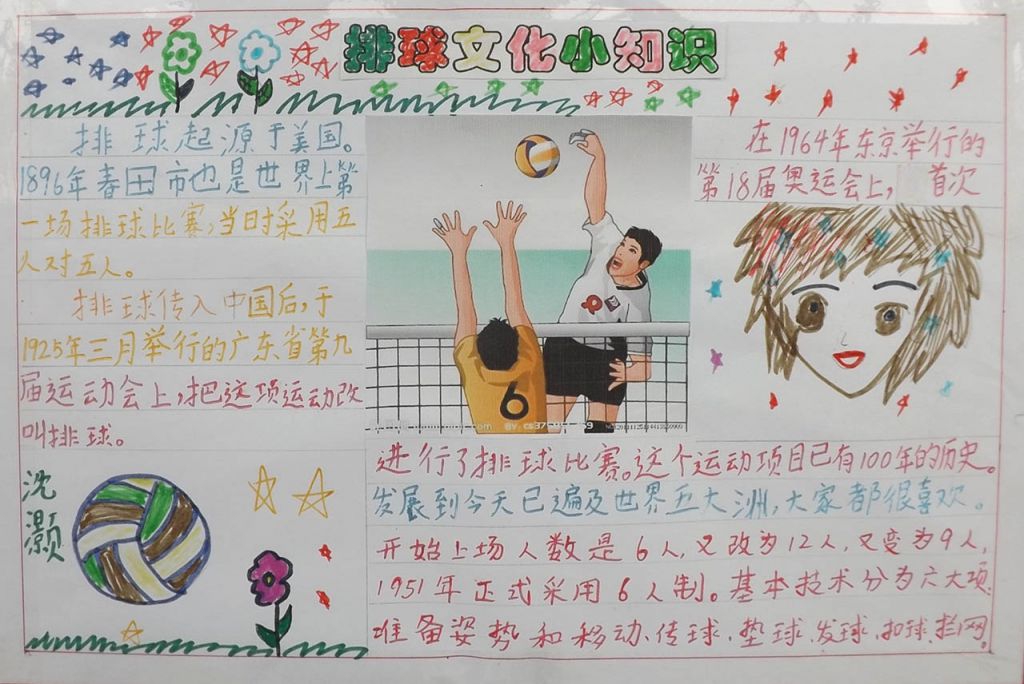 排球文化小知识
排球起源于美国。
1896年春田市也是世界上第
一场排球比赛,当时采用五
人对五人。
排球传入中国后,于
1925年三月举行的广东省第九
届运动会上,把这项运动改
叫排球。
沈
灏
6
BY
在1964年东京举行的
第18届奥运会上, 首次
进行了排球比赛。这个运动项目已有100年的历史。
发展到今天已遍及世界五大洲,大家都很喜欢。
开始上场人数是6人,又改为12人,又变为9人,
1951年正式采用6人制。基本技术分为六大项
准备姿势和移动、传球、垫球、发球、扣球、拦网。